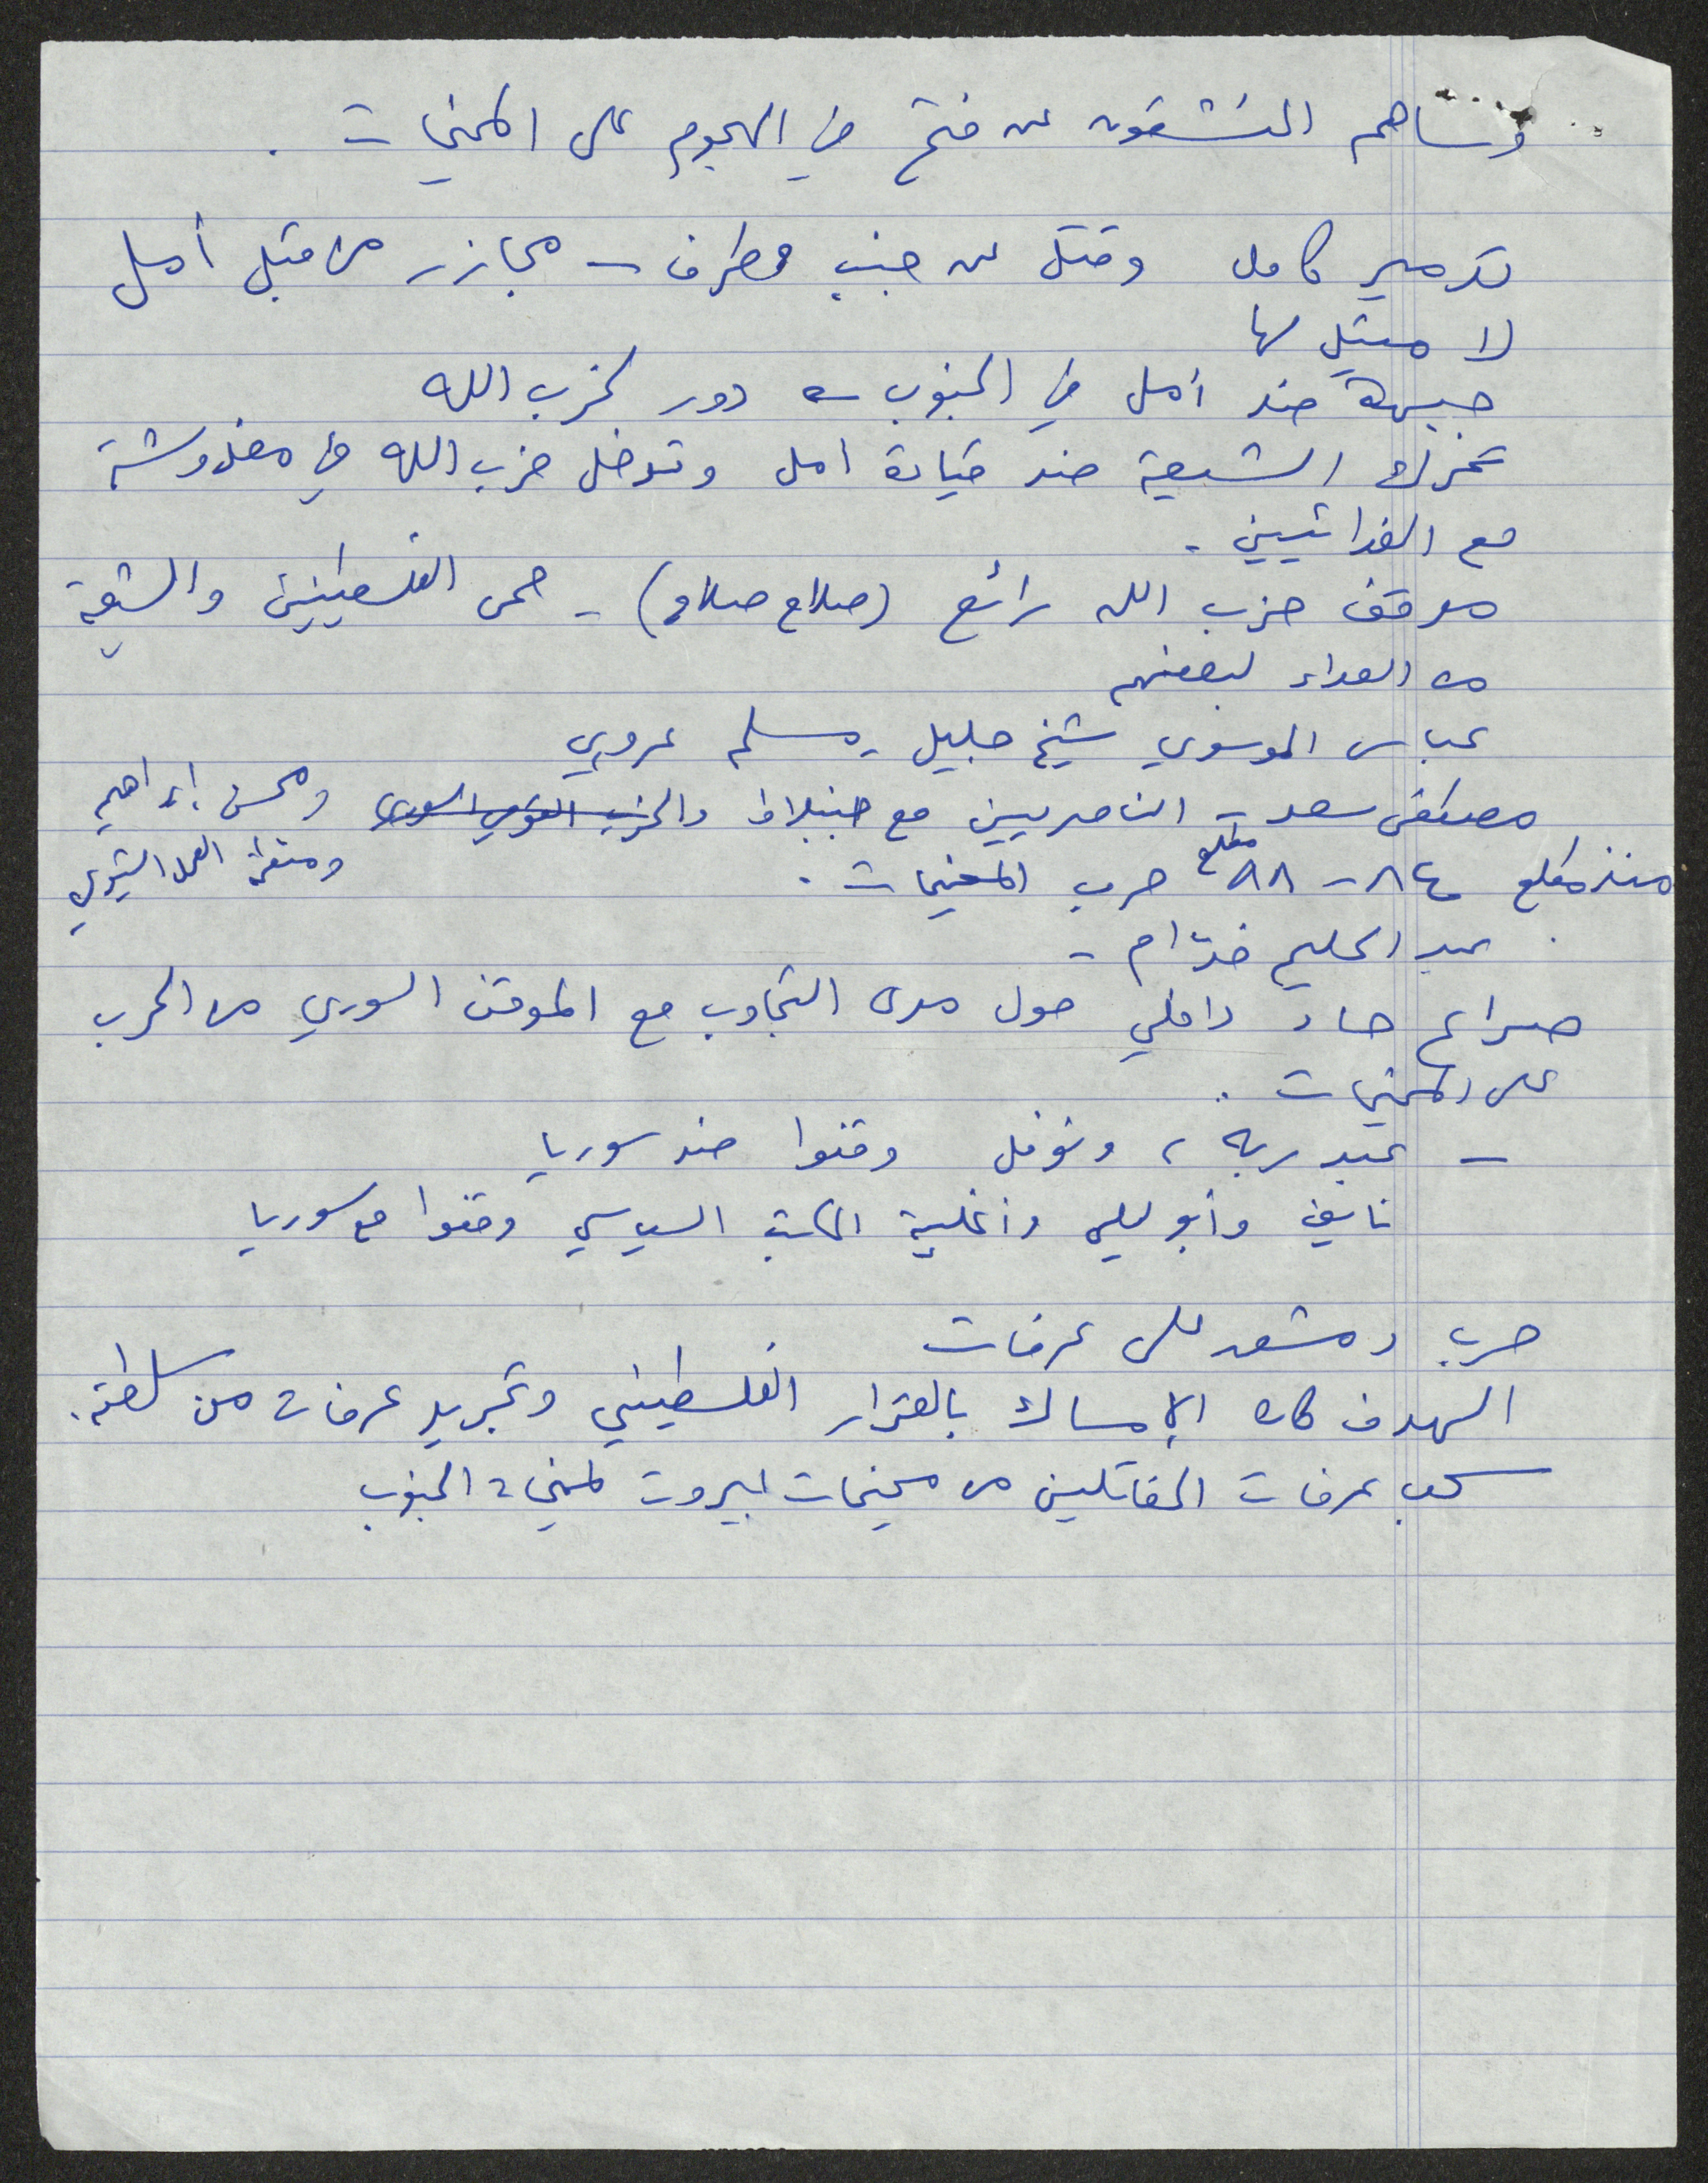 وساهم المنشقون عن فتح في الهجوم على المخيمات .
تدمير كامل وقتل عن جنب وطرف - مجازر من قبل أمل
لا مثيل لها
جبهة ضد أمل في الجنوب - دور لحزب الله
تحرك الشيعة ضد قيادة امل وتدخل حزب الله في مغدوشة
مع الفدائيين .
موقف حزب الله رائع (صلاح صلاح) - حمى الفلسطينيين والشيعة
من العداء لبعضهم
عباس الموسوي شيخ جليل - مسلم عروبي
مصطفى سعد - الناصريين مع جنبلاط والحزب القومي السوري ومحسن إبراهيم
ومنظمة العمل الشيوعي
منذ مطلع ٨٤ - مطلع ٨٨ حرب المخيمات .
عبد الحليم خدّام -
صراع حاد داخلي حول مدى التجاوب مع الموقف السوري من الحرب
على المخيمات .
- عبد ربه ، ونوفل وقفوا ضد سوريا
نايف وأبو ليلى وأغلبية المكتب السياسي وقفوا مع سوريا
حرب دمشق على عرفات
الهدف كان الإمساك بالقرار الفلسطيني وتجريد عرفات من سلطته .
سحب عرفات المقاتلين من مخيمات بيروت لمخيمات الجنوب